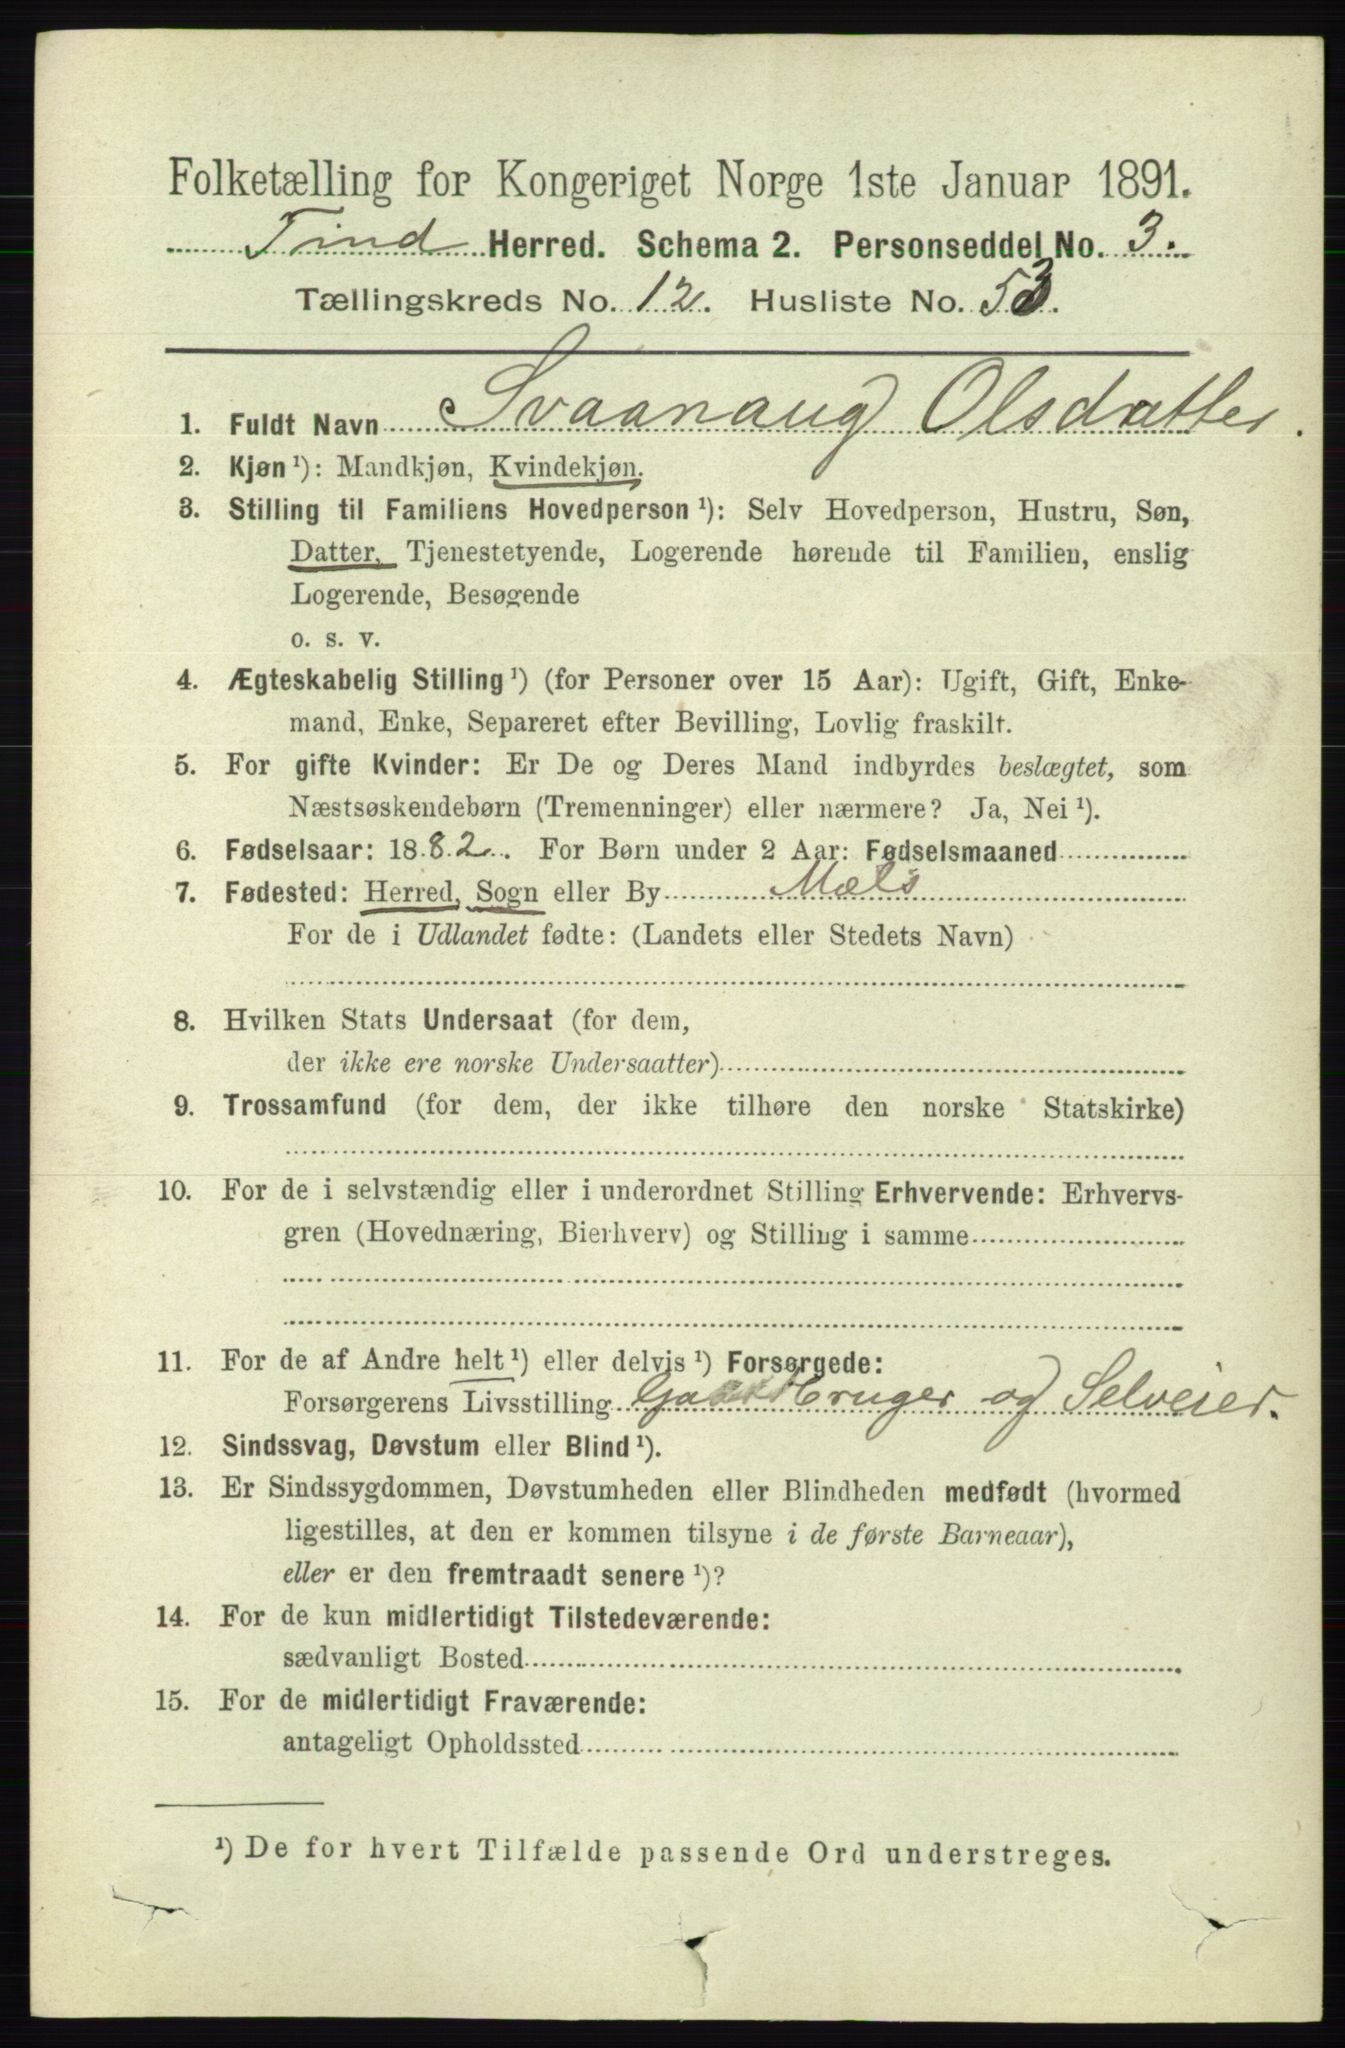 Folketælling for Kongeriget Norge 1ste Januar 1891.
Tind Herred. Schema 2. Personseddel No. 3.
Tællingskreds No. 12. Husliste No. 53.
1. Fuldt Navn Svaanaug Olsdatter.
2. Kjøn ¹): Mandkjøn, Kvindekjøn.
3. Stilling til Familiens Hovedperson ¹): Selv Hovedperson, Hustru, Søn,
Datter, Tjenestetyende, Logerende hørende til Familien, enslig
Logerende, Besøgende
o. s. v.
4. Ægteskabelig Stilling ¹) (for Personer over 15 Aar): Ugift, Gift, Enke-
mand, Enke, Separeret efter Bevilling, Lovlig fraskilt.
5. For gifte Kvinder: Er De og Deres Mand indbyrdes beslægtet, som
Næstsøskendebørn (Tremenninger) eller nærmere? Ja, Nei ¹).
6. Fødselsaar: 1882. For Børn under 2 Aar: Fødselsmaaned
7. Fødested: Herred, Sogn eller By Mæls
For de i Udlandet fødte: (Landets eller Stedets Navn)
8. Hvilken Stats Undersaat (for dem,
der ikke ere norske Undersaatter)
9. Trossamfund (for dem, der ikke tilhøre den norske Statskirke)
10. For de i selvstændig eller i underordnet Stilling Erhvervende: Erhvervs-
gren (Hovednæring, Bierhverv) og Stilling i samme
11. For de af Andre helt ¹) eller delvis ¹) Forsørgede:
Forsørgerens Livsstilling Gaardbruger og Selveier.
12. Sindssvag, Døvstum eller Blind ¹).
13. Er Sindssygdommen, Døvstumheden eller Blindheden medfødt (hvormed
ligestilles, at den er kommen tilsyne i de første Barneaar),
eller er den fremtraadt senere ¹)?
14. For de kun midlertidigt Tilstedeværende:
sædvanligt Bosted
15. For de midlertidigt Fraværende:
antageligt Opholdssted
¹) De for hvert Tilfælde passende Ord understreges.